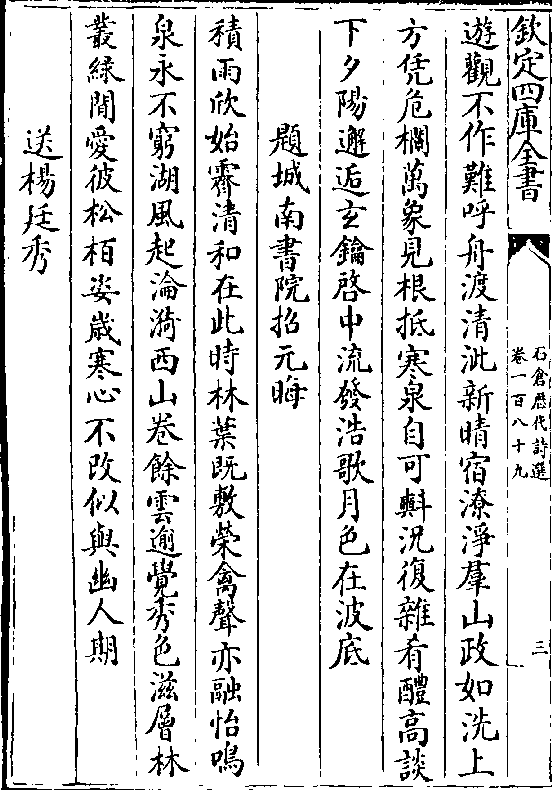 欽定四庫全書
石倉歴代詩選
卷一百八十九
三
遊觀不作難呼舟渡清泚新晴宿潦淨羣山政如洗上
方凭危欄萬象見根抵寒泉自可㪺況復雜肴醴高談
下夕陽邂逅玄鑰啓中流發浩歌月色在波底
題城南書院招元晦
積雨欣始霽清和在此時林葉既敷榮禽聲亦融怡鳴
泉永不窮湖風起淪漪西山卷餘雲逾覺秀色滋層林
叢緑間愛彼松栢姿歳寒心不改似與幽人期
送楊廷秀